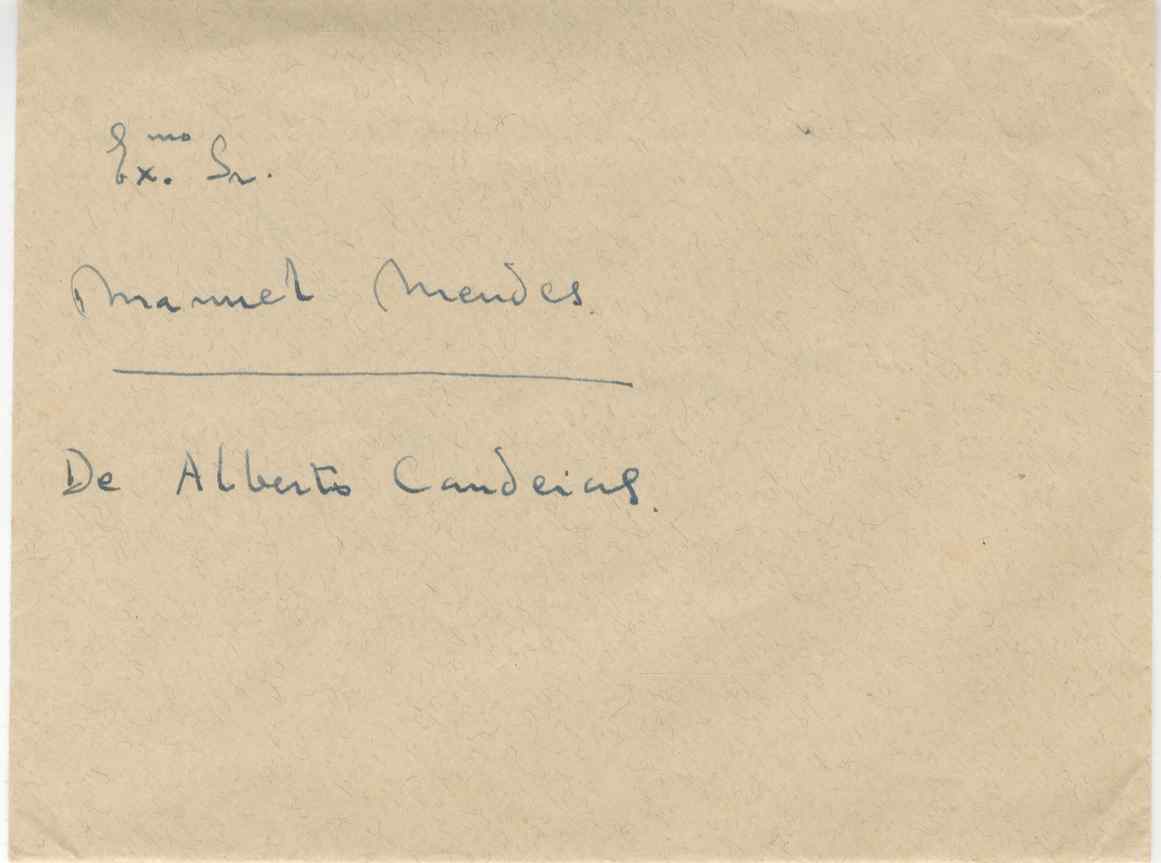 Ex.mo Sr.
Manuel Mendes.
De Alberto Candeias.